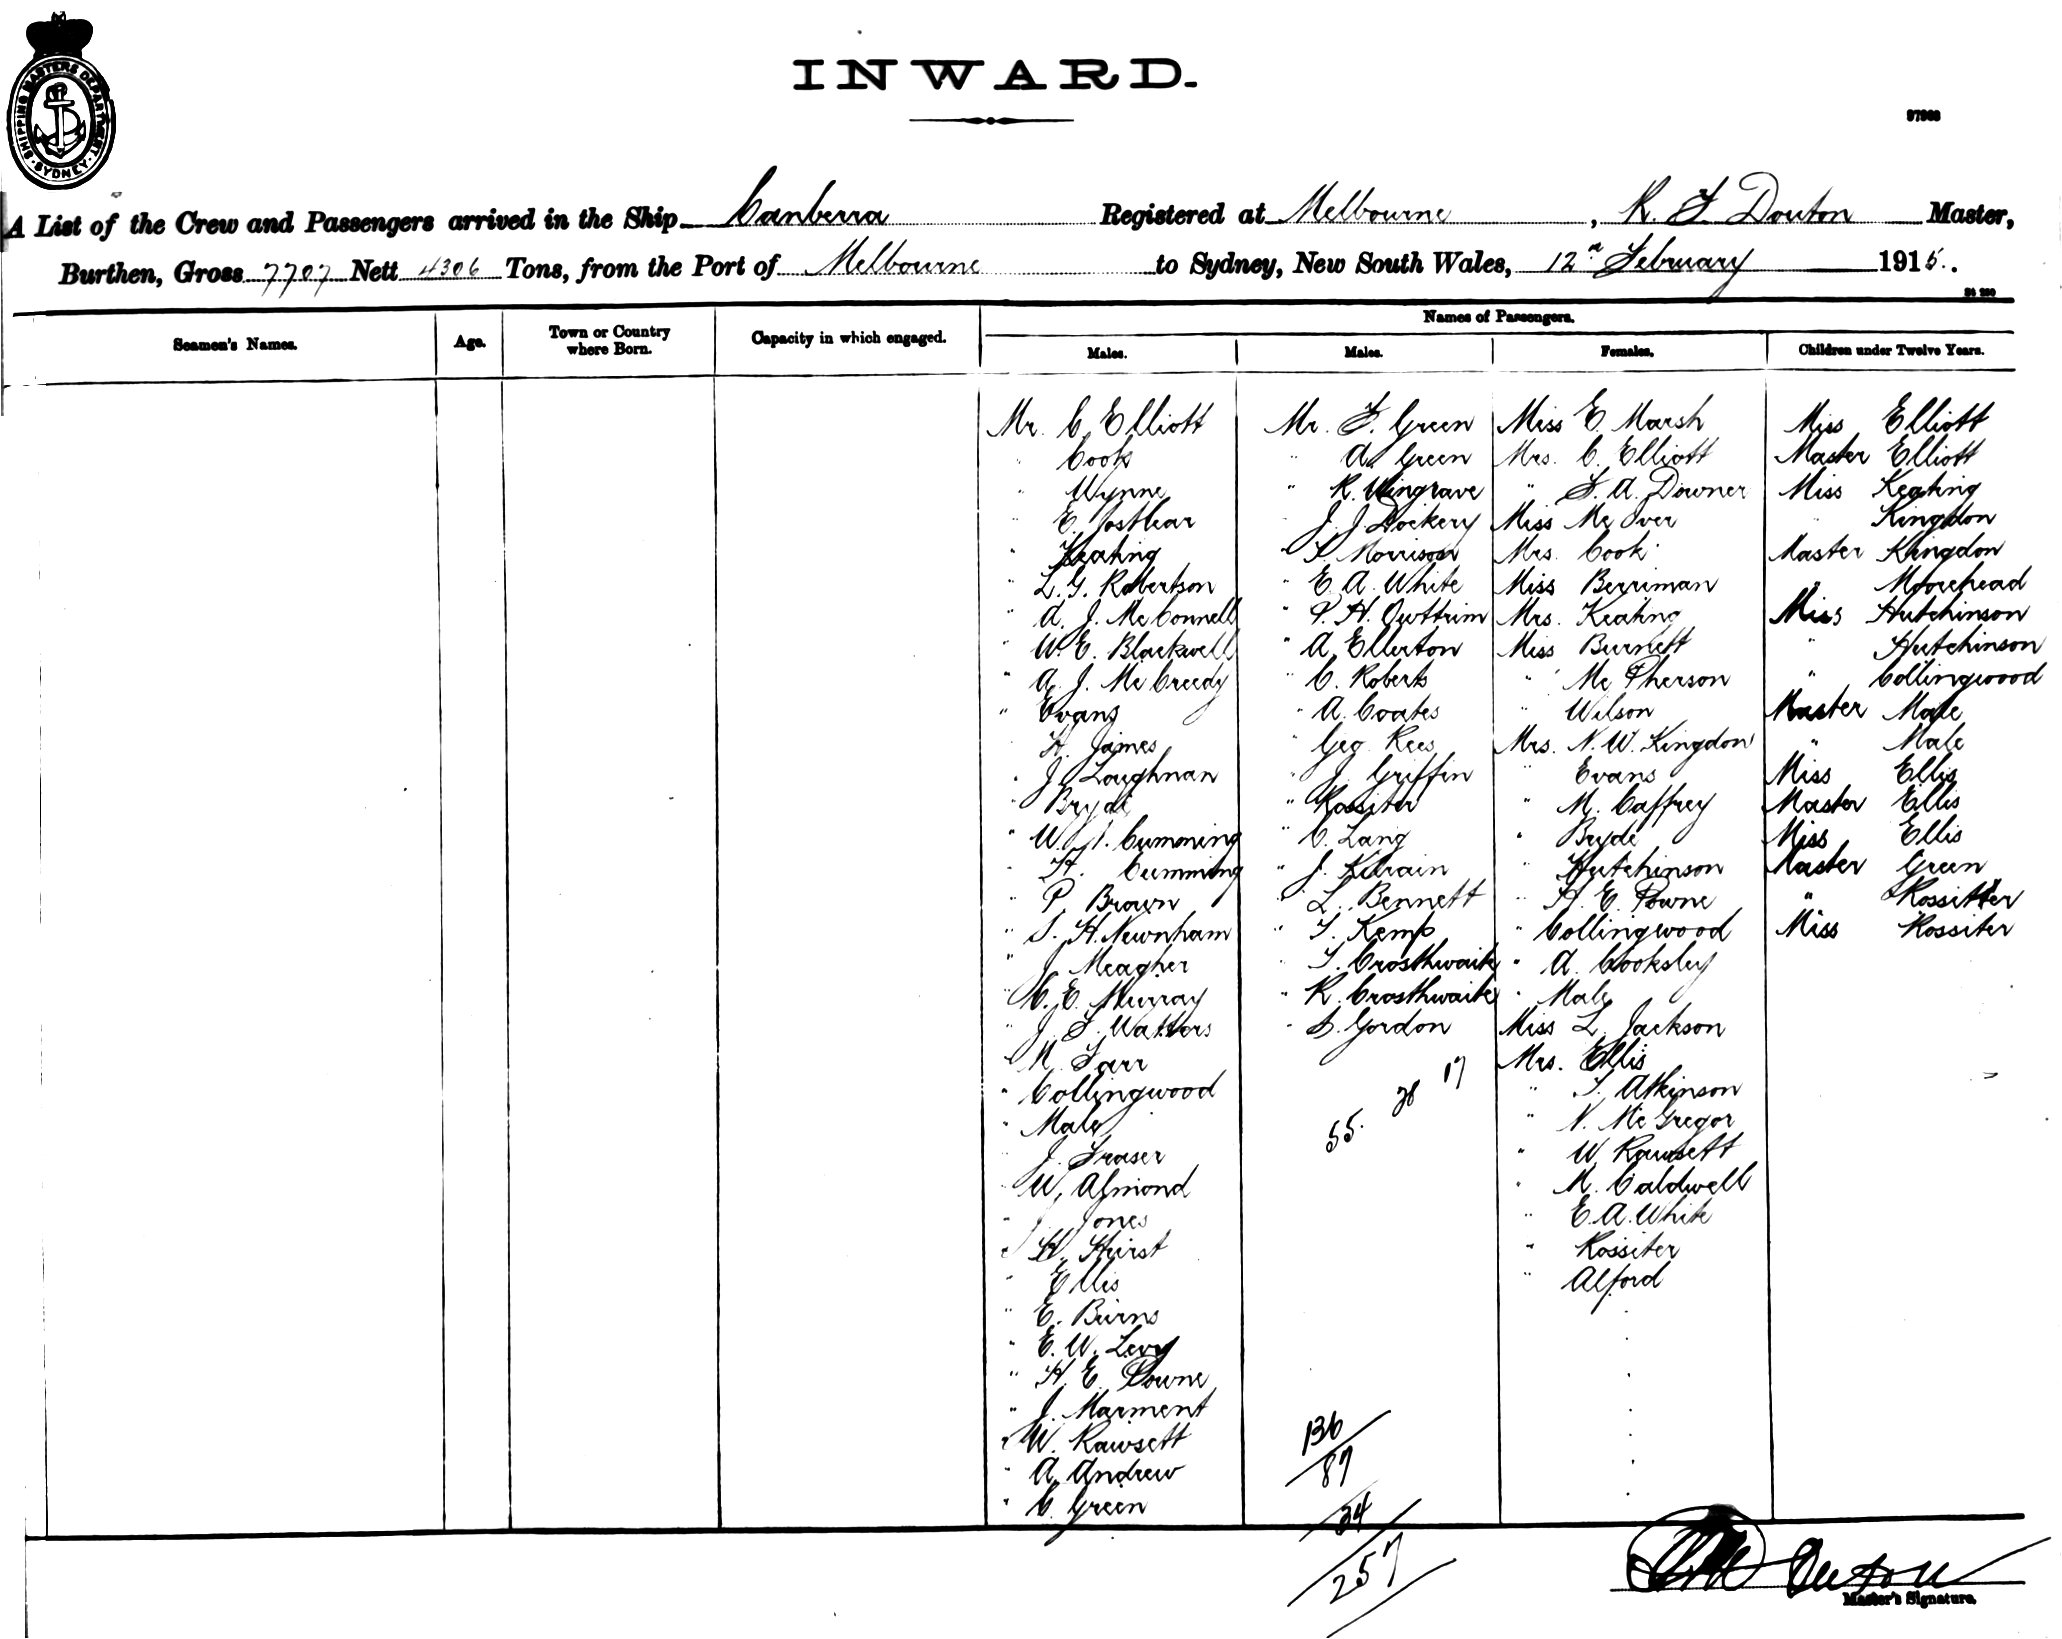 INWARD.
SHIPPING MASTERS DEPARTMENT
SYDNEY
97963
A List of the Crew and Passengers arrived in the Ship Canberra Registered at Melbourne, R. F. Douton Master,
Burthen, Gross 7707 Nett 4306 Tons, from the Port of Melbourne to Sydney, New South Wales, 12th February 1915.
Names of Passengers.
Seamen's Names. Age. Town or Country where Born. Capacity in which engaged. Males. Males. Females. Children under Twelve Years.
Mr. C. Elliott
" Cook
" Wynne
" E.
" Keating
" L. G. Robertson
" A. J. McConnell
" W. E. Blackwell
" A. J. McCreedy
" Evans
H. James
" J. Loughnan
" Bryde
" W. J. Cumming
" H. Cumming
" P. Brown
" S. H. Newnham
" J. Meagher
" C. E. Murray
" J. F. Watters
" M. Farr
" Collingwood
" Male
J. Fraser
" W. Almond
" J. Jones
" H. Hurst
" Ellis
" E. Burns
" E. W. Levy
" H. E. Powne
" J. Marment
" W. Rawsett
" A. Andrew
" C. Green
Mr. F. Green
" A. Green
" R. Wingrave
J. J. Dockery
" T. Morrison
" E. A. White
" P. H. Owttrim
" A. Ellerton
" C. Roberts
" A. Coates
" Geo Rees
" J. Griffin
" Rossiter
" C. Lang
" J. Kilrain
" L. Bennett
" T. Kemp
" T. Crosthwaite
" R. Crosthwaite
" S. Gordon
55. 28 17
136
87
34
257
Miss E. Marsh
Mrs. C. Elliott
" F. A. Downer
Miss McIver
Mrs. Cook
Miss Berriman
Mrs. Keating
Miss Burnett
" McPherson
" Wilson
Mrs. N. W. Kingdon
" Evans
" M. Caffrey
" Bryde
" Hutchinson
" H. E. Powne
" Collingwood
" A. Cooksley
" Male
Miss L. Jackson
Mrs. Ellis
" T. Atkinson
" N. McGregor
" W. Rawsett
" M. Caldwell
" E. A. White
" Rossiter
" Alford
Miss Elliott
Master Elliott
Miss Keating
" Kingdon
Master Kingdon
" Moorehead
Miss Hutchinson
" Hutchinson
" Collingwood
Master Male
" Male
Miss Ellis
Master Ellis
Miss Ellis
Master Green
" Rossitter
Miss Rossiter
Douton
Master's Signature.